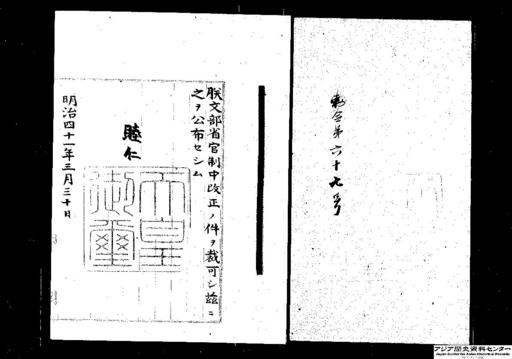 勅令第六十九号
朕文部省官制中改正ノ件ヲ裁可シ茲ニ
之ヲ公布セシム
睦仁
天皇御璽
明治四十一年三月三十日
アジア歴史資料センター
Japan Center for Asian Historical Records